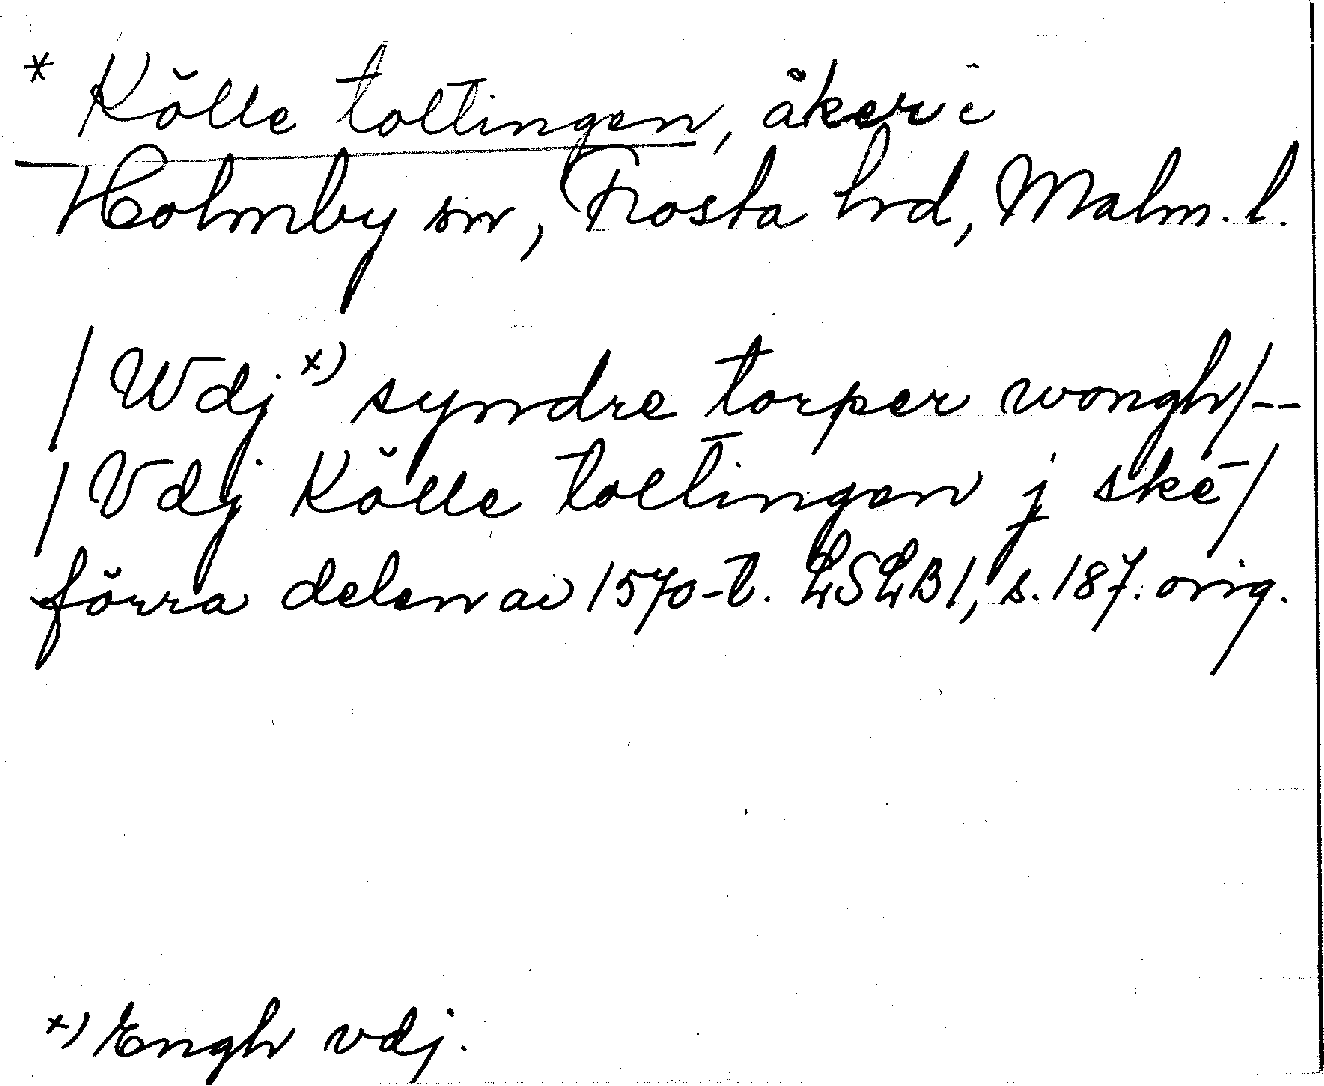 * Kölle toltingen, åker i
Holmby sn, Frosta hrd, Malm. l.
/ Wdj x) syndre torper wongh/--
/ Vdj Kölle toltingen j ske/
förra delen av 1570-t. LSLB1, s. 187. orig.
x) Engh vdj.